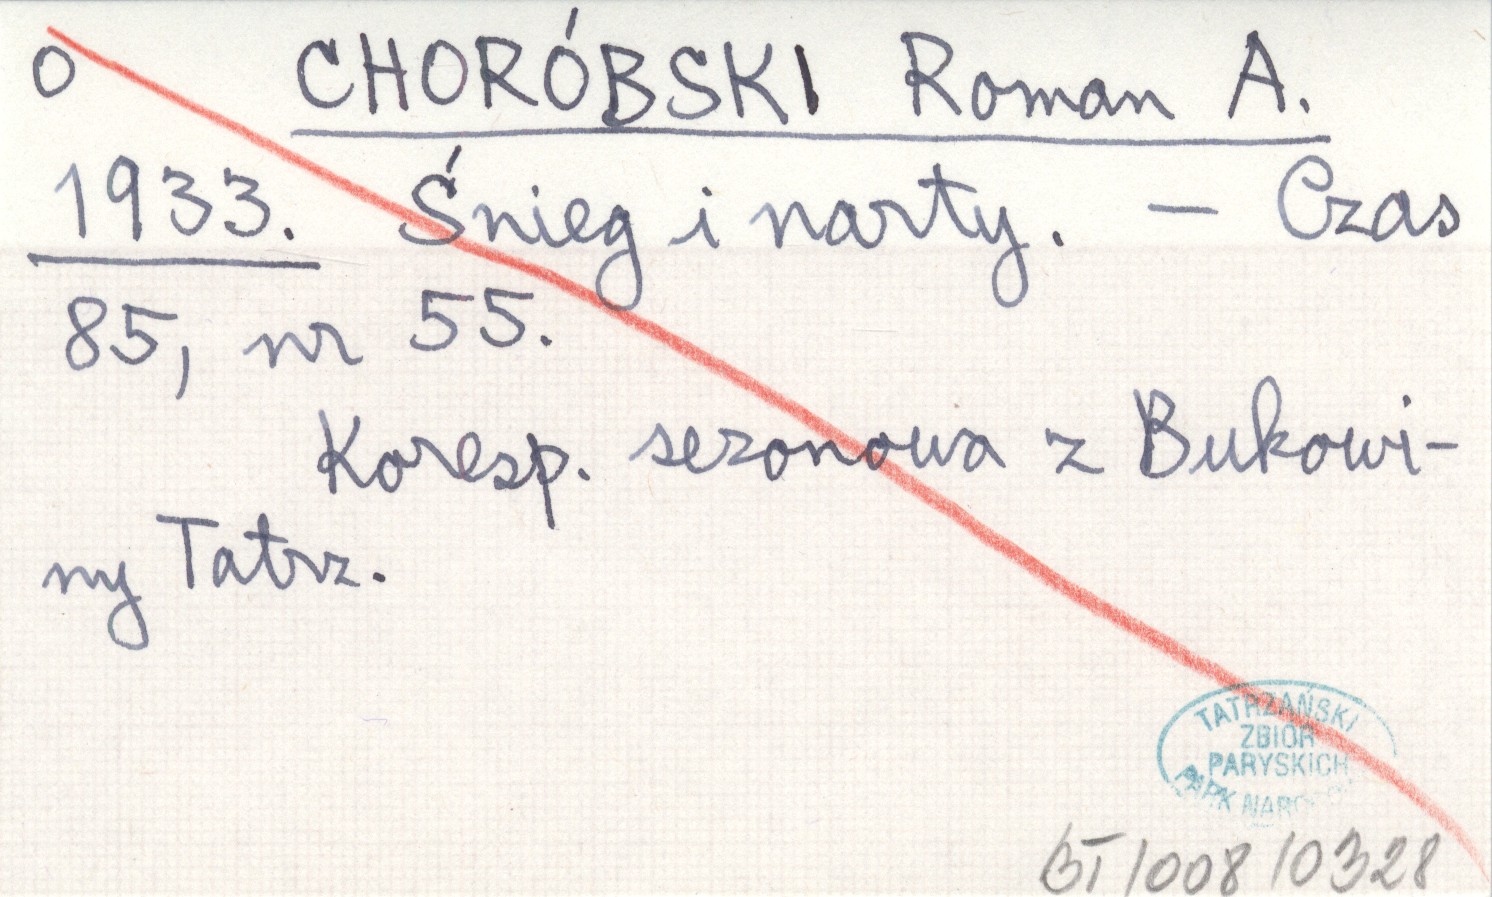 o CHORÓBSKI Roman A.
1933. Śnieg i narty. — Czas
85, nr 55.
Koresp. sezonowa z Bukowi-
ny Tatrz.
TATRZAŃSKI
ZBIÓR
PARYSKICH
PARK
BT/008/0328